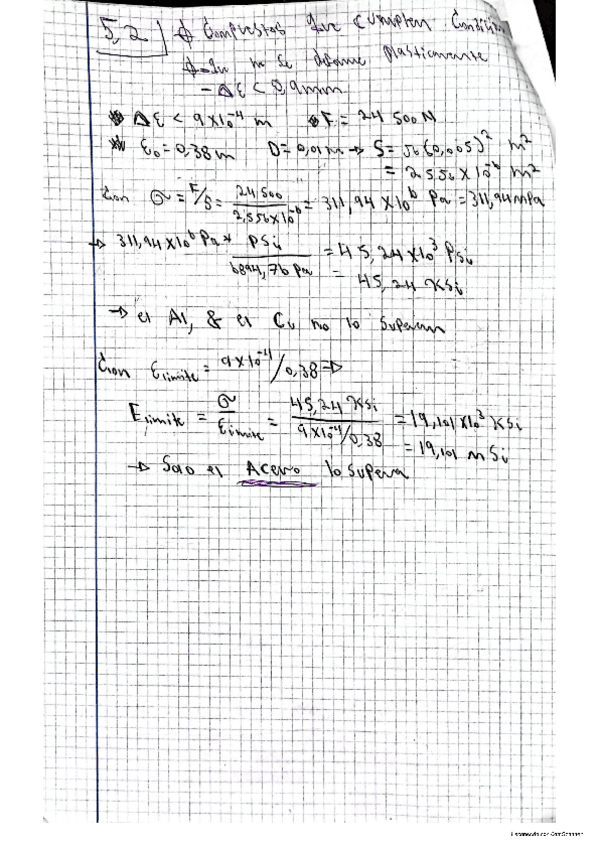 5,2) ϕ Compuestos que cumplen Condición
ϕ no se deforme plasticamente
- Δε < 0,9mm
* Δε < 9x10⁻⁴ m F = 24 500 N
* ε₀ = 0,38m D = 0,01m → S = π(0,005)² m²
= 2,556 x 10⁻⁶ m²
Con σ = F/S = 24 500 / 2,556x10⁻⁶ = 311,94 x 10⁶ Pa = 311,94 mPa
→ 311,94x10⁶ Pa * Psi / 6894,76 Pa = 45,24 x10³ Psi
= 45,24 KSi
→ el Al, & el Cu no lo Superan
Con εlimite = 9x10⁻⁴/0,38 ⇒
Elimite = σ / εlimite = 45,24 KSi / 9x10⁻⁴/0,38 = 19,101 x10³ KSi
= 19,101 mSi
→ Solo el Acero lo Supera